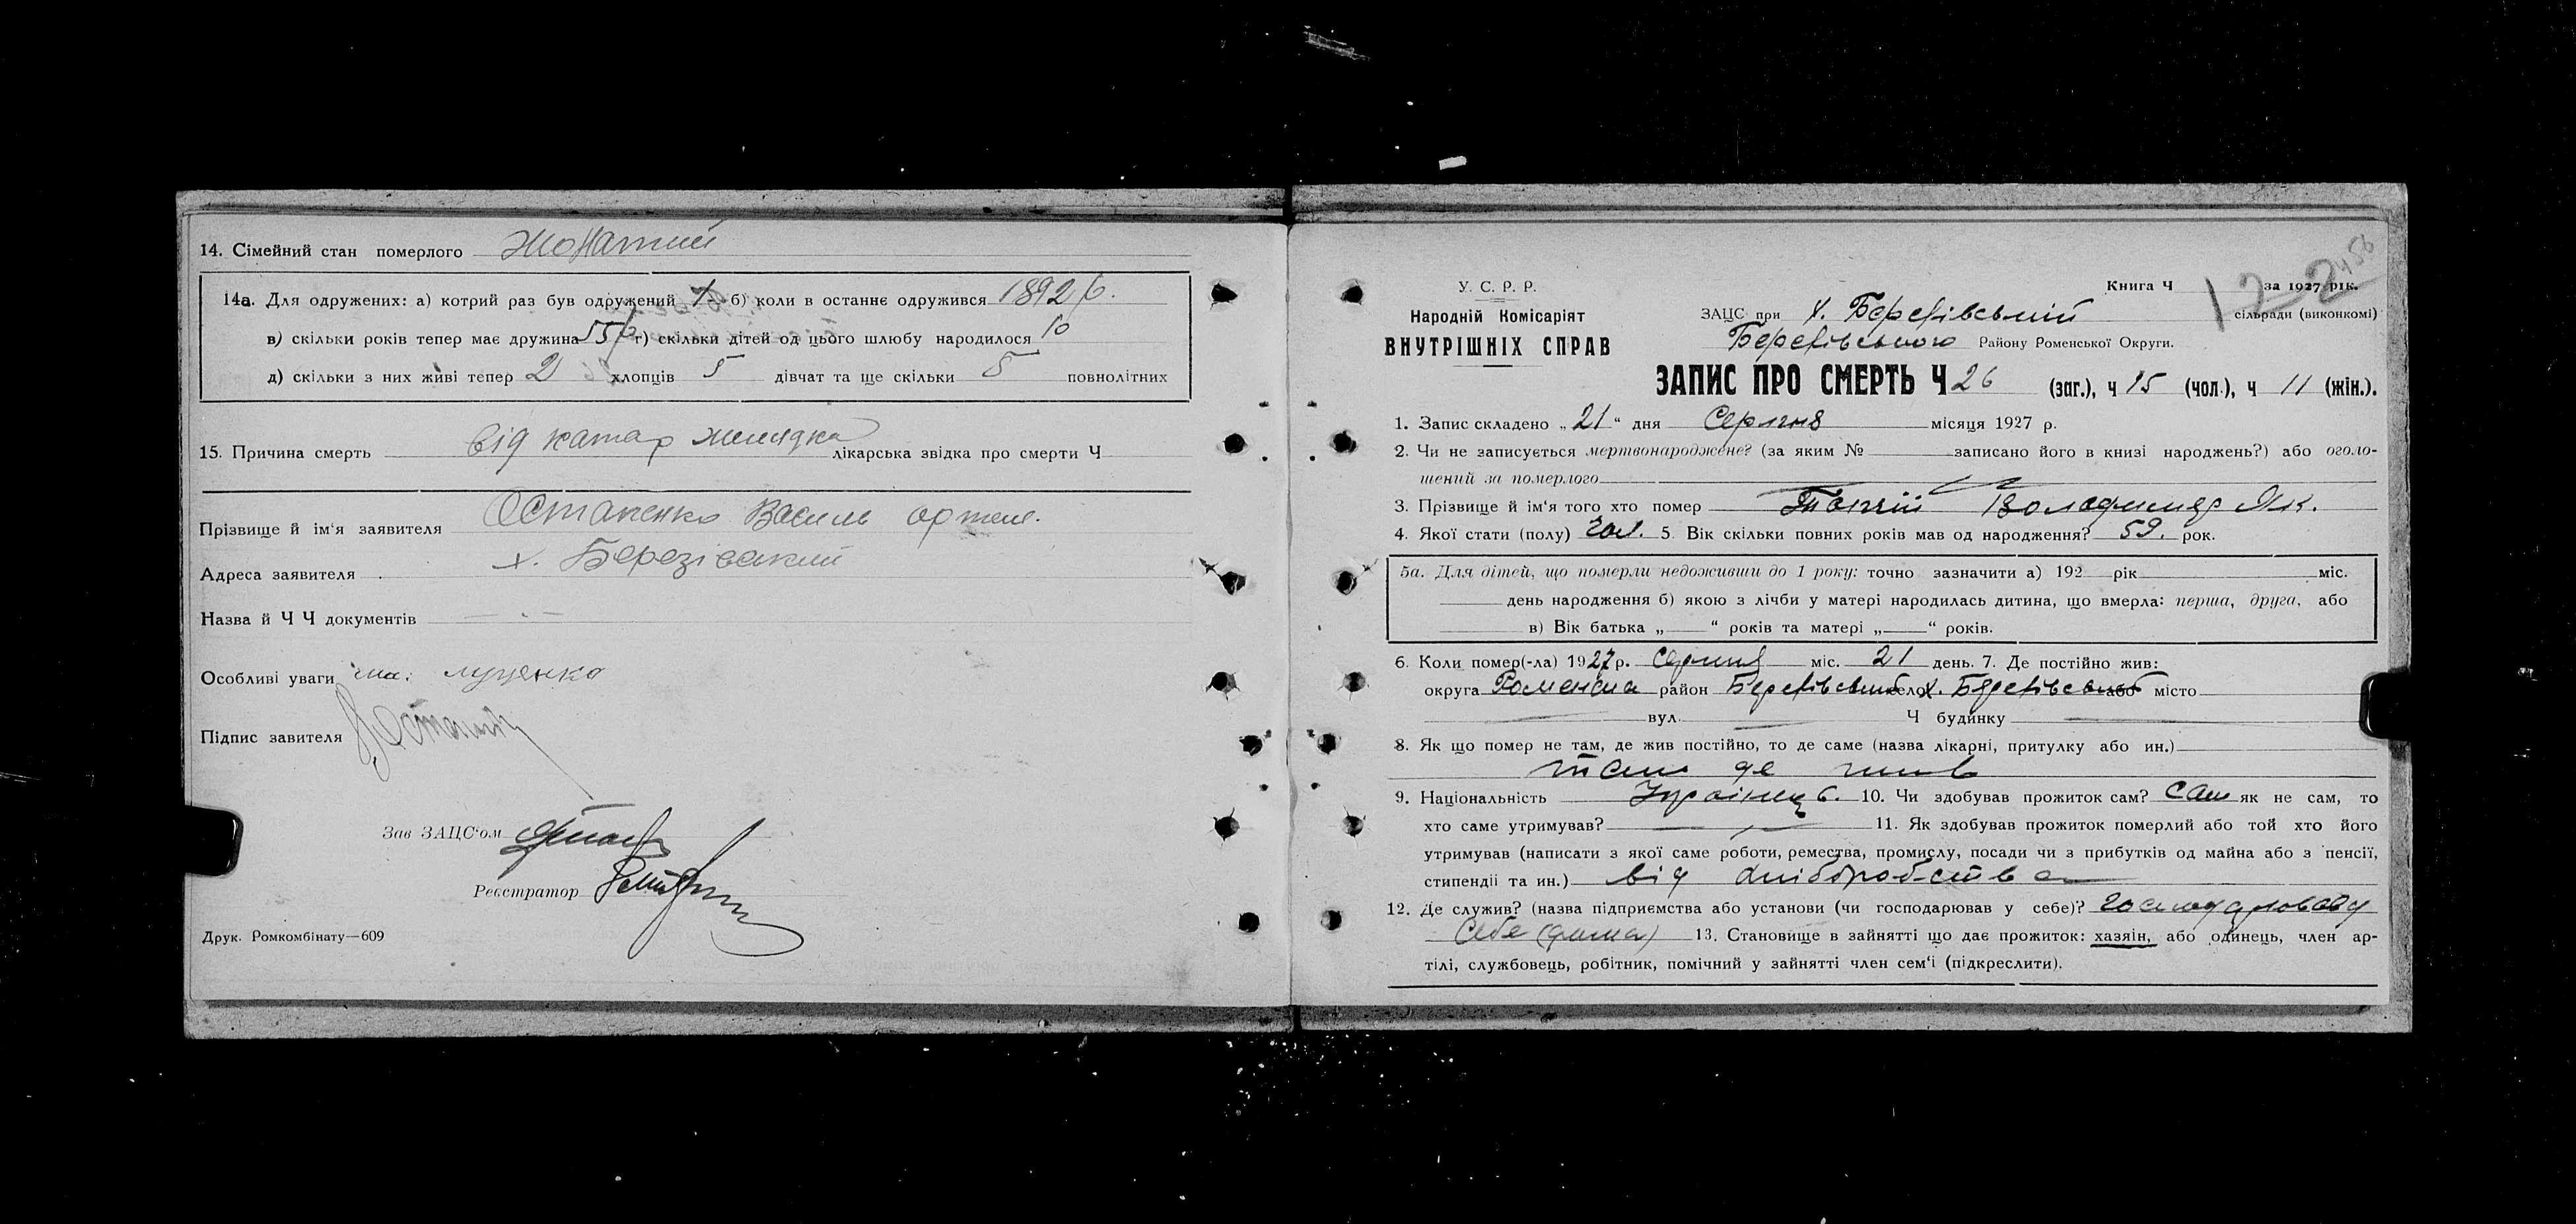 14. Сімейний стан померлого Жонатий
14а. Для одружених: а) котрий раз був одружений 1 б) коли в останнє одружився 1892 р.
в) скільки років тепер має дружина 55 р г) скільки дітей од цього шлюбу народилося 10
д) скільки з них живі тепер 2 хлопців 5 дівчат та ще скільки 5 повнолітних
15. Причина смерть від катар желудка лікарська звідка про смерти Ч
Прізвище й ім'я заявителя Остапенко Василь
Адреса заявителя х. Березівський
Назва й Ч Ч документів
Особливі уваги луценко
Підпис завителя
Зав ЗАЦС'ом
Реєстратор
Друк. Ромкомбінату—609
458
У. С. Р. Р.
Народній Комісаріят
ВНУТРІШНІХ СПРАВ
Книга Ч за 1927 рік.
ЗАЦС при х. Березівській сільради (виконкомі)
Березівського Району Роменської Округи.
ЗАПИС ПРО СМЕРТЬ Ч 26 (заг.), ч 15 (чол.), ч 11 (жін.).
1. Запис складено „21“ дня Серпня місяця 1927 р.
2. Чи не записується мертвонароджене? (за яким № записано його в книзі народжень?) або оголо-
шений за померлого
3. Прізвище й ім'я того хто помер Володимир Як.
4. Якої стати (полу) чол. 5. Вік скільки повних років мав од народження? 59. рок.
5а. Для дітей, що померли недоживши до 1 року: точно зазначити а) 192 рік міс.
день народження б) якою з лічби у матері народилась дитина, що вмерла: перша, друга, або
в) Вік батька „ “ років та матері „ “ років.
6. Коли помер(-ла) 1927 р. серпня міс. 21 день. 7. Де постійно жив:
округа Роменська район Березівський село х. Березівський або місто
вул. Ч будинку
8. Як що помер не там, де жив постійно, то де саме (назва лікарні, притулку або ин.)
там де жив
9. Національність Українець. 10. Чи здобував прожиток сам? сам як не сам, то
хто саме утримував? 11. Як здобував прожиток померлий або той хто його
утримував (написати з якої саме роботи, ремества, промислу, посади чи з прибутків од майна або з пенсії,
стипендії та ин.) від хліборобства
12. Де служив? (назва підприємства або установи (чи господарював у себе)? господарював у
себе (дома) 13. Становище в зайнятті що дає прожиток: хазяін, або одинець, член ар-
тілі, службовець, робітник, помічний у зайнятті член сем'ї (підкреслити).